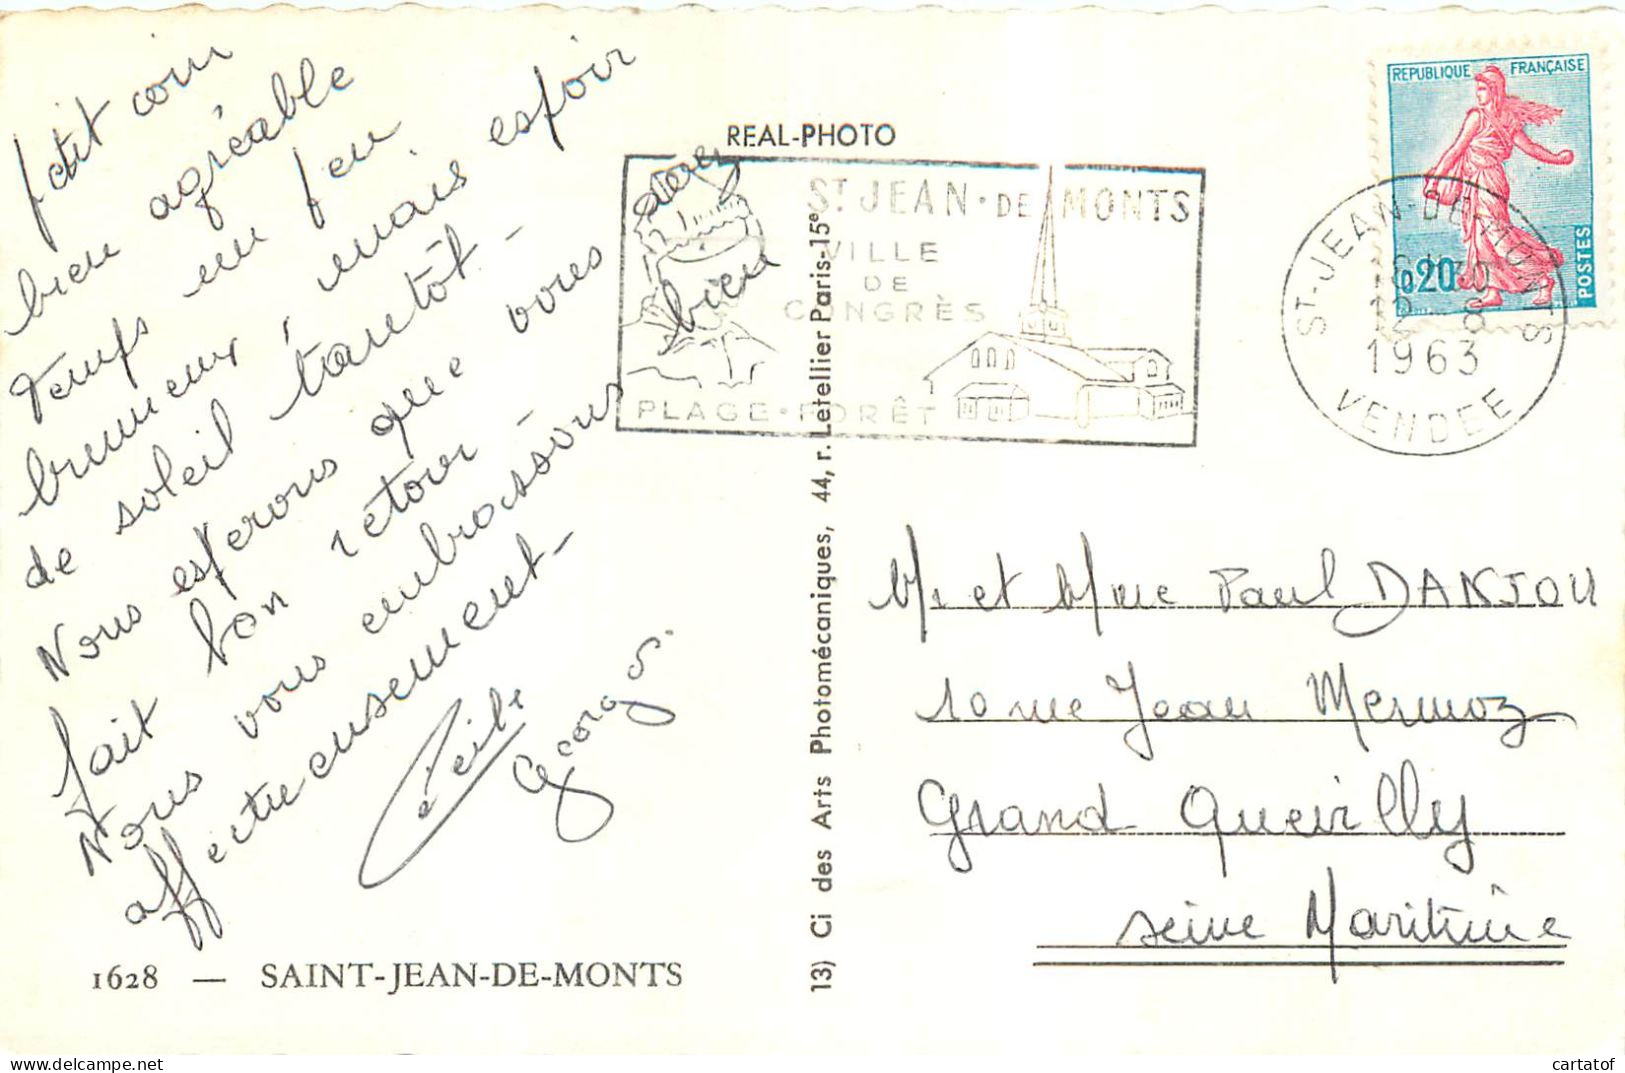 Petit coin
bien agréable
Temps un peu
brumeux mais espoir
de soleil tantôt -
Nous espérons que vous avez
fait bon retour bien
Nous vous embrassons
affectueusement -
Georges.
1628 — SAINT-JEAN-DE-MONTS
REAL-PHOTO
ST JEAN·DE MONTS
VILLE
DE
CONGRÈS
PLAGE·FORÊT
13) Ci des Arts Photomécaniques, 44, r. Letellier Paris-15e
REPUBLIQUE FRANÇAISE
0,20
POSTES
ST-JEAN-DE-MONTS
12-8
1963
VENDEE
Mr et Mme Paul DANJOU
10 rue Jean Mermoz
Grand Quevilly
Seine Maritime
cartatof